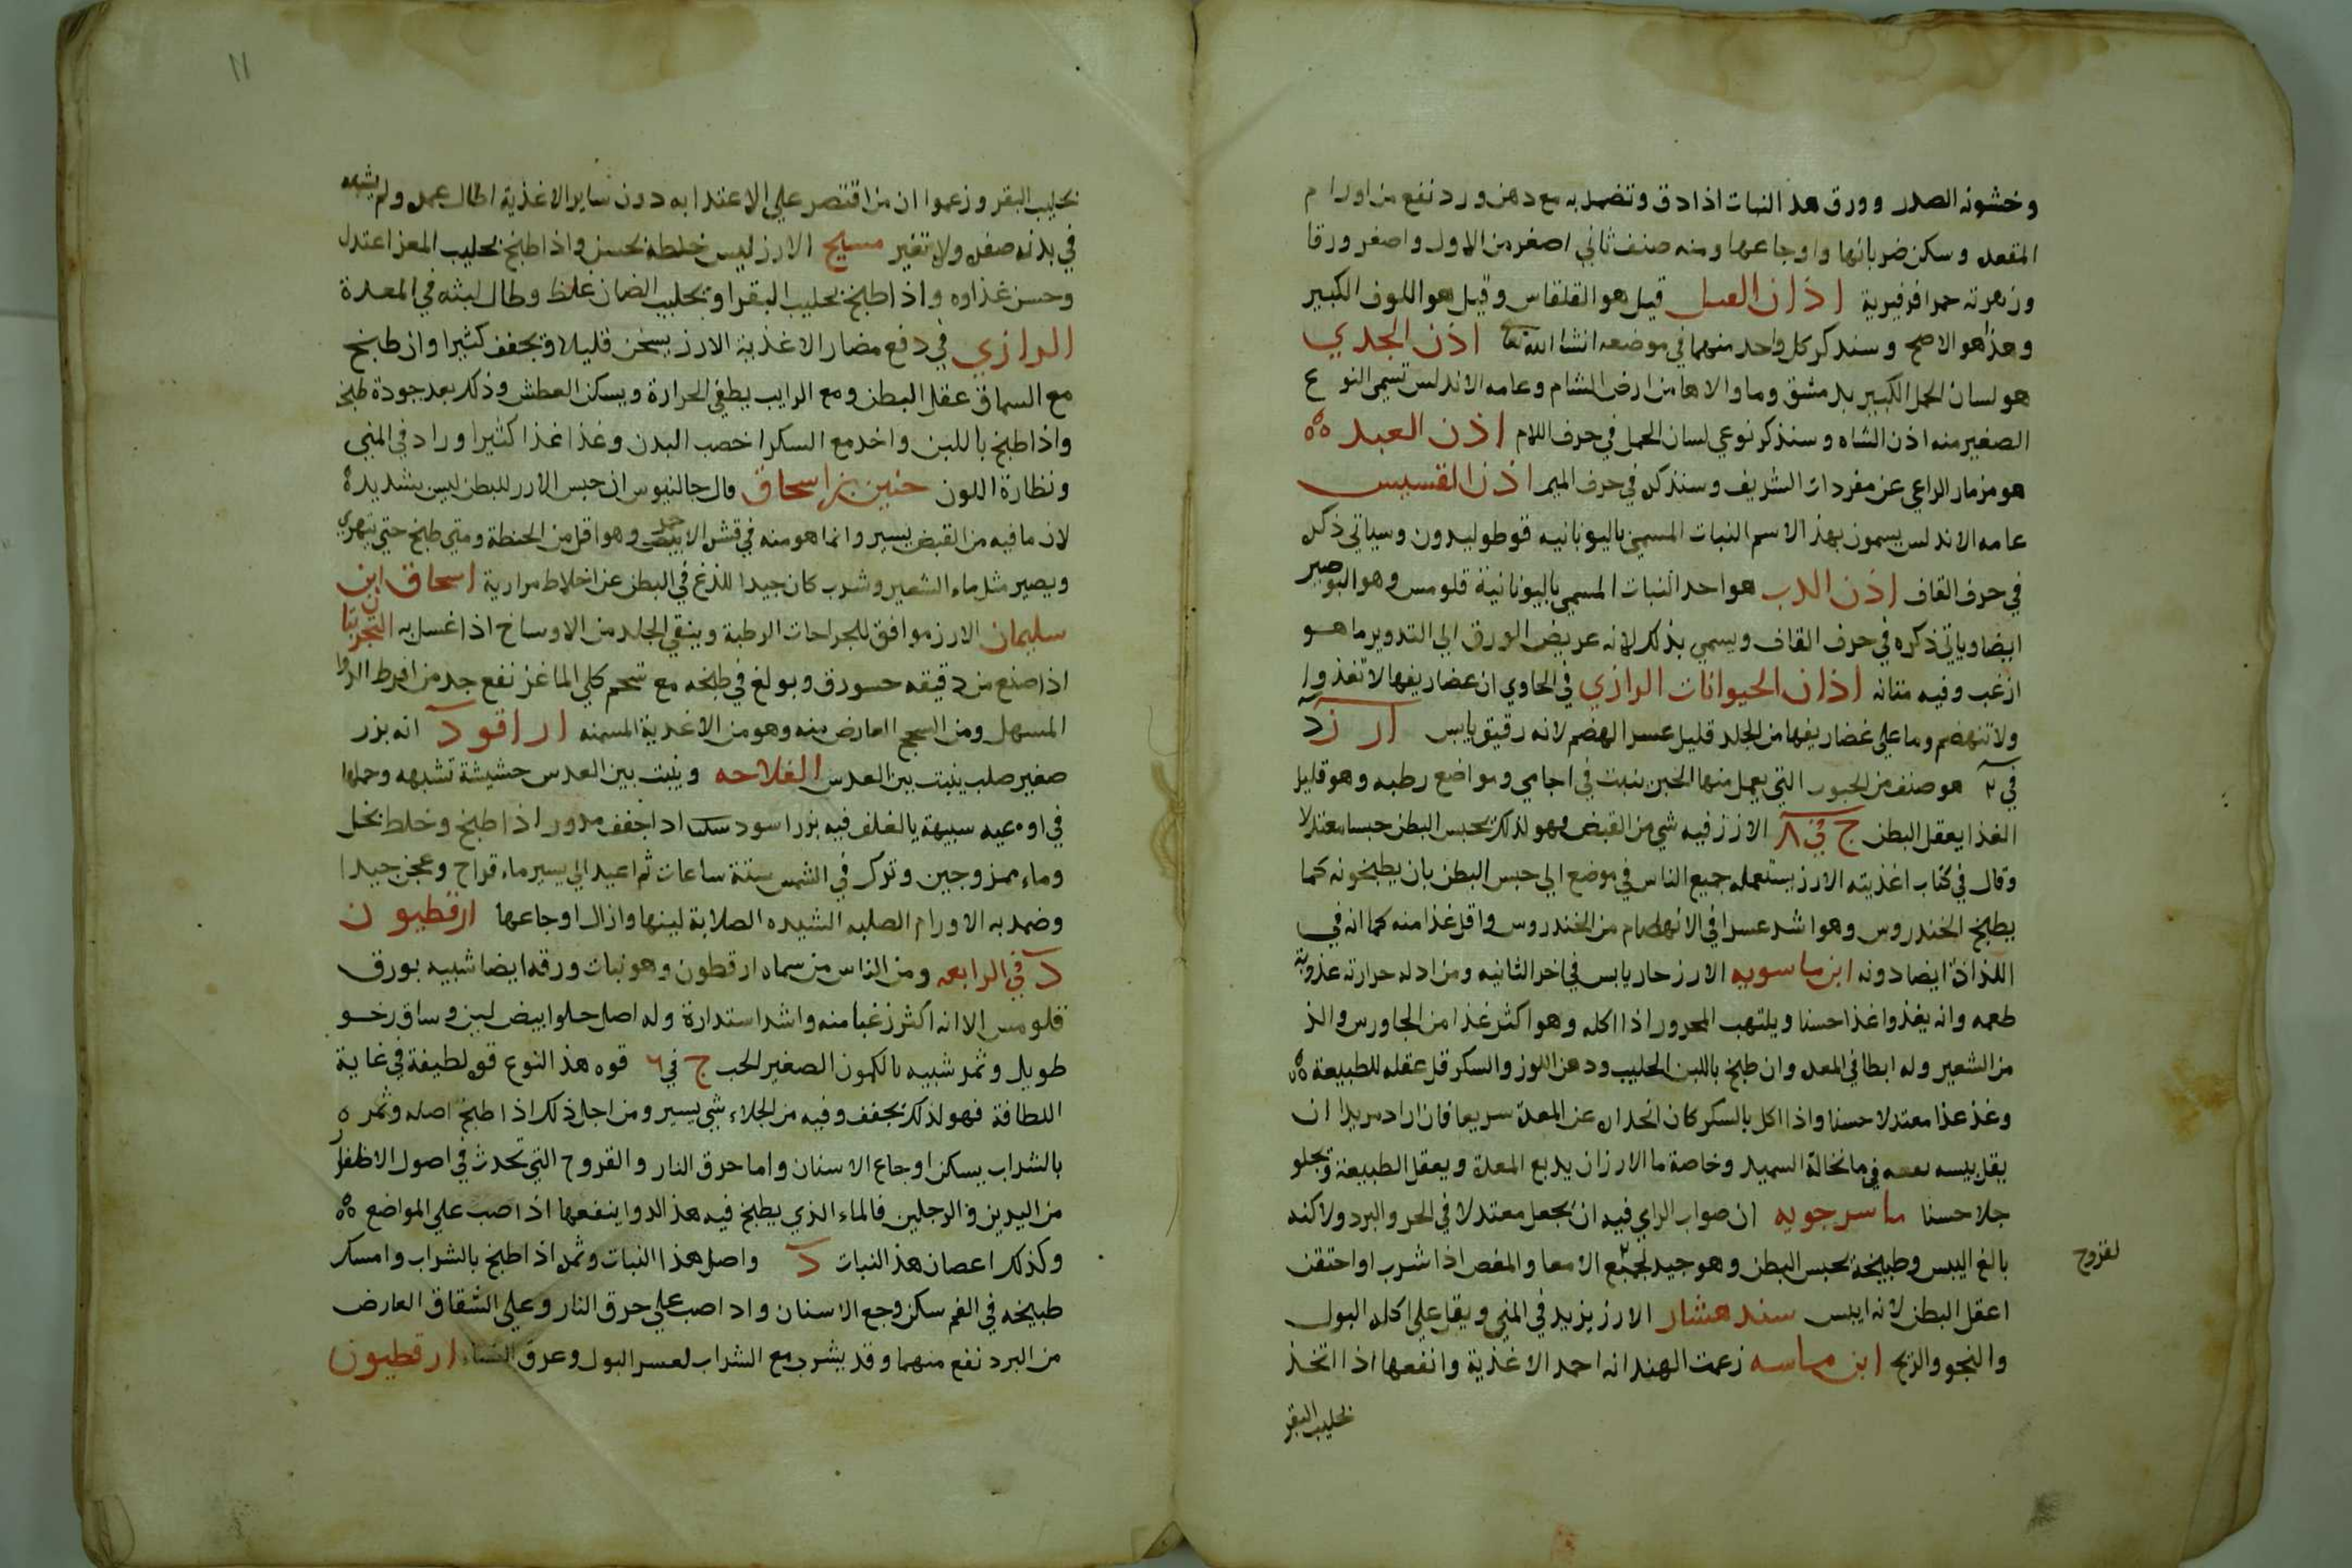 وخشونه الصدر وورق هذ النبات اذا دق وتضمد به مع دهن ورد نفع من اورام
المقعده وسكن ضربانها واوجاعها ومنه صنف ثاني اصغر من الاول واصغر ورقا
وزهرته حمرا فرفيرية اذان الفيل قيل هو القلقاس وقيل هو اللوف الكبير
وهذا هو الاصح وسنذكر كل واحد منهما في موضعه انشا الله تعا اذن الجدي
هو لسان الحمل الكبير بدمشق وما والاها من ارض الشام وعامه الاندلس تسمى النوع
الصغير منه اذن الشاه وسنذكر نوعي لسان الحمل في حرف اللام اذن العبد
هو مزمار الراعي عن مفردات الشريف وسنذكره في حرف الميم اذن القسيس
عامه الاندلس يسمون بهذ الاسم النبات المسمى باليونانيه قوطوليدون وسياتي ذكره
في حرف القاف اذن الدب هو احد النبات المسمى باليونانية قلومس وهو البوصير
ايضا وياتي ذكره في حرف القاف ويسمي بذلك لانه عريض الورق الى التدوير ما هو
ازغب وفيه متانه اذان الحيوانات الرازي في الحاوي ان غضاريفها لا تغذوا
ولا تنهضم وما على غضاريفها من الجلد قليل عسر الهضم لانه رقيق يابس ارز د
في ٢ هو صنف من الحبوب التي يعمل منها الخبز ينبت في اجامي ومواضع رطبه وهو قليل
الغذا يعقل البطن ج في ٨ الارز فيه شي من القبض فهو لذلك يحبس البطن حبسا معتدلا
وقال في كتاب اغذيته الارز يستعمله جميع الناس في موضع الي حبس البطن بان يطبخونه كما
يطبخ الخندروس وهو اشد عسرا في الانهضام من الخندروس واقل غذا منه كما انه في
اللذاذة ايضا دونه ابن ماسويه الارز حار يابس في اخر الثانيه ومن ادله حرارته عذوبة
طعمه وانه يغذوا غذا حسنا ويلتهب المحرور اذا اكله وهو اكثر غذا من الجاورس والذ
من الشعير وله ابطا في المعده وان طبخ باللبن الحليب ودهن اللوز والسكر قل عقله للطبيعة
وغذ غذا معتدلا حسنا واذا اكل بالسكر كان انحداره عن المعدة سريعا فان اراد مريد ان
يقل يبسه نقعه في ما نخالة السميد وخاصة ما الارز ان يدبغ المعدة ويعقل الطبيعة ويجلو
جلا حسنا ماسرجويه ان صواب الراي فيه ان يجعل معتدلا في الحر والبرد ولاكنه
بالغ اليبس وطبيخه يحبس البطن وهو جيد لجميع الامعا والمغص اذا شرب او احتقن
لقروح
اعقل البطن لانه ايبس سندهشار الارز يزيد في المني ويقل على اكله البول
والنجو والريح ابن ماسه زعمت الهند انه احمد الاغذية وانفعها اذا اتخذ
بحليب البقر
١١
بحليب البقر وزعموا ان من اقتصر علي الاعتدا به دون ساير الاغذية اطال عمره ولم يشبه
في بدنه صفره ولا تغير مسيح الارز ليس خلطه بحسن واذا طبخ بحليب المعز اعتدل
وحسن غذاوه واذا طبخ بحليب البقر او بحليب الضان غلظ وطال لبثه في المعدة
الرازي في دفع مضار الاغذية الارز يسخن قليلا ويجفف كثيرا وان طبخ
مع السماق عقل البطن ومع الرايب يطفي الحرارة ويسكن العطش وذلك بعد جودة طبخه
واذا طبخ باللبن واخد مع السكر اخصب البدن وغذا غذا كثيرا وزاد في المني
ونظارة اللون حنين بن اسحاق قال جالنيوس ان حبس الارز للبطن ليس بشديد
لان ما فيه من القبض يسير وانما هو منه في قشر الابيض وهو اقل من الحنطة ومتى طبخ حتى يتهرى
ويصير مثل ماء الشعير وشرب كان جيدا للذع في البطن عن اخلاط مرارية اسحاق ابن
سليمان الارز موافق للجراحات الرطبة وينقي الجلد من الاوساخ اذا غسل به التجربتان
اذا صنع من دقيقه حسو رق وبولغ في طبخه مع شحم كلي الماعز نفع جد من افرط الدوا
المسهل ومن السحج العارض منه وهو من الاغدية المسمنه اراقود انه بزر
صغير صلب ينبت بين العدس الفلاحه وينبت بين العدس حشيشة تشبهه وحملها
في اوعيه سبيهة بالغلف فيه بزر اسود اذا جفف مدور اذا طبخ وخلط بخل
وماء ممزوجين وترك في الشمس ستة ساعات ثم اعيد الي يسير ماء قراح وعجن جيدا
وضمد به الاورام الصلبه الشديده الصلابة لينها وازال اوجاعها ارقطيون
د في الرابعه ومن الناس من سماه ارقطون وهو نبات ورقه ايضا شبيه بورق
قلومس الا انه اكثر زغبا منه واشد استدارة وله اصل حلو ابيض لين وساق رخو
طويل وثمر شبيه بالكمون الصغير الحب ج في ٦ قوه هذ النوع قوه لطيفة في غاية
اللطافة فهو لذلك يجفف وفيه من الجلاء شي يسير ومن اجل ذلك اذا طبخ اصله وثمره
بالشراب يسكن اوجاع الاسنان واما حرق النار والقروح التي تحدث في اصول الاظفار
من اليدين و الرجلين فالماء الذي يطبخ فيه هذ الدوا ينفعها اذا صب علي المواضع
وكذلك اعصان هذ النبات د واصل هذا النبات وثمره اذا طبخ بالشراب وامسك
طبيخه في الفم سكن وجع الاسنان واذا صب علي حرق النار وعلي الشقاق العارض
من البرد نفع منهما وقد يشرب مع الشراب لعسر البول وعرق النساء ارقطيون